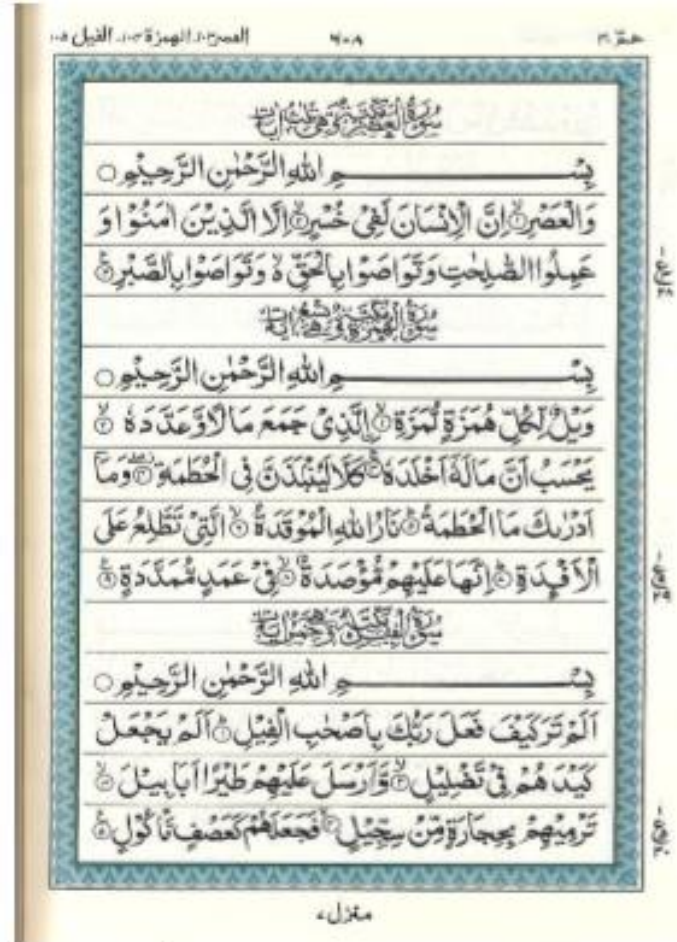 عم ٣٠ ٦٠٨ العصر١٠٣. الهمزة ١٠٤. الفيل ١٠٥
سُوْرَةُ الْعَصْرِ مَكِّيَّةٌ وَّهِيَ ثَلٰثُ اٰيَاتٍ
بِسْــــــــمِ اللّٰهِ الرَّحْمٰنِ الرَّحِيْمِ ○
وَالْعَصْرِ ۙ﴿١﴾ اِنَّ الْاِنْسَانَ لَفِيْ خُسْرٍ ۙ﴿٢﴾ اِلَّا الَّذِيْنَ اٰمَنُوْا وَ
عَمِلُوا الصّٰلِحٰتِ وَتَوَاصَوْا بِالْحَقِّ ۙ۬ وَتَوَاصَوْا بِالصَّبْرِ ﴿٣﴾
سُوْرَةُ الْهُمَزَةِ مَكِّيَّةٌ وَّهِيَ تِسْعُ اٰيَاتٍ
بِسْــــــــمِ اللّٰهِ الرَّحْمٰنِ الرَّحِيْمِ ○
وَيْلٌ لِّكُلِّ هُمَزَةٍ لُّمَزَةِ ۙ﴿١﴾ اِلَّذِيْ جَمَعَ مَالًا وَّعَدَّدَهٗ ۙ﴿٢﴾
يَحْسَبُ اَنَّ مَالَهٗٓ اَخْلَدَهٗ ۚ﴿٣﴾ كَلَّا لَيُنْۢبَذَنَّ فِي الْحُطَمَةِ ﴿٤﴾ وَمَآ
اَدْرٰىكَ مَا الْحُطَمَةُ ؕ﴿٥﴾ نَارُ اللّٰهِ الْمُوْقَدَةُ ۙ﴿٦﴾ الَّتِيْ تَطَّلِعُ عَلَى
الْاَفْـِٕدَةِ ؕ﴿٧﴾ اِنَّهَا عَلَيْهِمْ مُّؤْصَدَةٌ ۙ﴿٨﴾ فِيْ عَمَدٍ مُّمَدَّدَةٍ ﴿٩﴾
سُوْرَةُ الْفِيْلِ مَكِّيَّةٌ وَّهِيَ خَمْسُ اٰيَاتٍ
بِسْــــــــمِ اللّٰهِ الرَّحْمٰنِ الرَّحِيْمِ ○
اَلَمْ تَرَ كَيْفَ فَعَلَ رَبُّكَ بِاَصْحٰبِ الْفِيْلِ ؕ﴿١﴾ اَلَمْ يَجْعَلْ
كَيْدَهُمْ فِيْ تَضْلِيْلٍ ۙ﴿٢﴾ وَّاَرْسَلَ عَلَيْهِمْ طَيْرًا اَبَابِيْلَ ۙ﴿٣﴾
تَرْمِيْهِمْ بِحِجَارَةٍ مِّنْ سِجِّيْلٍ ۪ۙ﴿٤﴾ فَجَعَلَهُمْ كَعَصْفٍ مَّاْكُوْلٍ ﴿٥﴾
منزل ٧